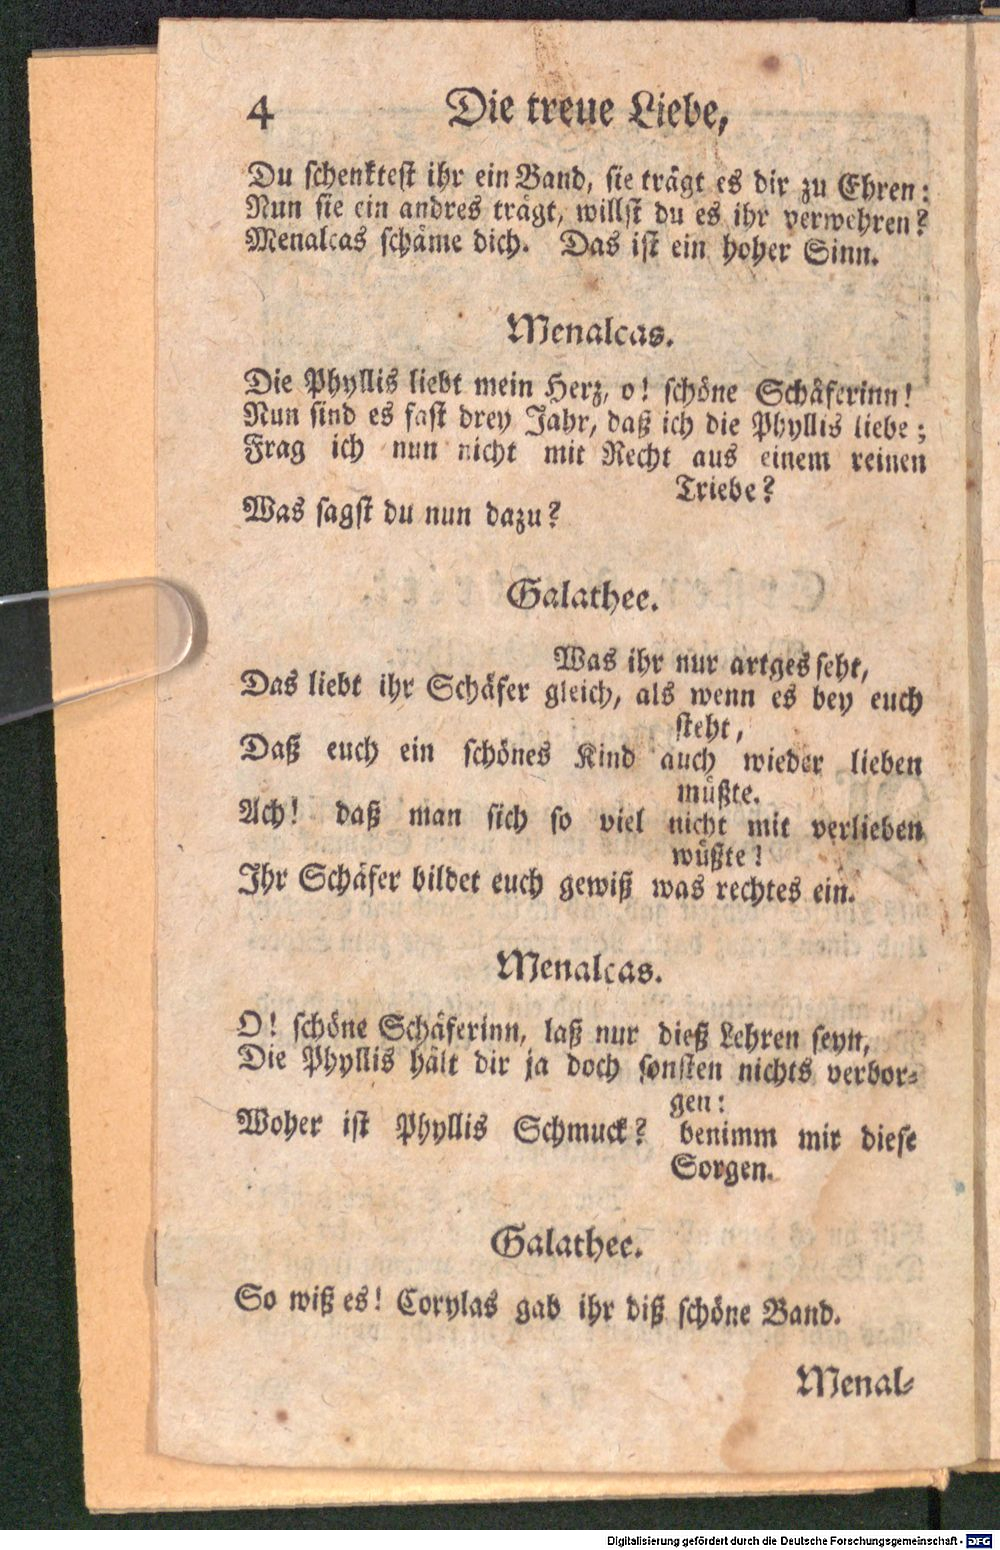 4 Die treue Liebe,
Du schenktest ihr ein Band, sie trägt es dir zu Ehren:
Nun sie ein andres trägt, willst du es ihr verwehren?
Menalcas schäme dich. Das ist ein hoher Sinn.
Menalcas.
Die Phyllis liebt mein Herz, o! schöne Schäferinn!
Nun sind es fast drey Jahr, daß ich die Phyllis liebe;
Frag ich nun nicht mit Recht aus einem reinen
Triebe?
Was sagst du nun dazu?
Galathee.
Was ihr nur artges seht,
Das liebt ihr Schäfer gleich, als wenn es bey euch
steht,
Daß euch ein schönes Kind auch wieder lieben
müßte.
Ach! daß man sich so viel nicht mit verlieben
wüßte!
Ihr Schäfer bildet euch gewiß was rechtes ein.
Menalcas.
O! schöne Schäferinn, laß nur dieß Lehren seyn,
Die Phyllis hält dir ja doch sonsten nichts verbor-
gen:
Woher ist Phyllis Schmuck? benimm mir diese
Sorgen.
Galathee.
So wiß es! Corylas gab ihr diß schöne Band.
Menal-
Digitalisierung gefördert durch die Deutsche Forschungsgemeinschaft - DFG